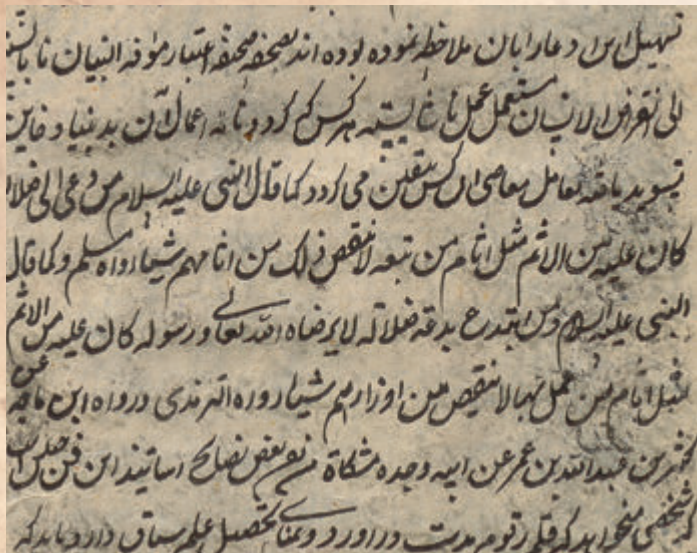 تسهیل این دعا را بان ملاحظه نموده بوده اند بصحفه صحیفه اعتبار موافه البیان تا
الی انقراض الانسان مستعمل عمل ناشایسته هر کس کم کردد نامه اعمال آن بد بنیاد
تسوید یافته بعامل معاصی آن کس متیقن می کردد کما قال النبی علیه السلام من دعی الی ضلا
کان علیه من الاثم مثل اثام من تبعه لا ینقص ذلک من اثامهم شیئا رواه مسلم و کما قال
النبی علیه السلام و من ابتدع بدعه ضلاله لا یرضاه الله تعالی و رسوله کان علیه من الاثم
مثل اثام من عمل بها لا ینقص من اوزارهم شیئا رواه الترمذی و رواه ابن ماجه عن
کثیر بن عبدالله بن عمر عن ابیه وجده مشکاة من نوع بعض نصایح اساتید این فن
شخصی میخواهد که در اورد و تحصیل علم سیاق دارد باید که